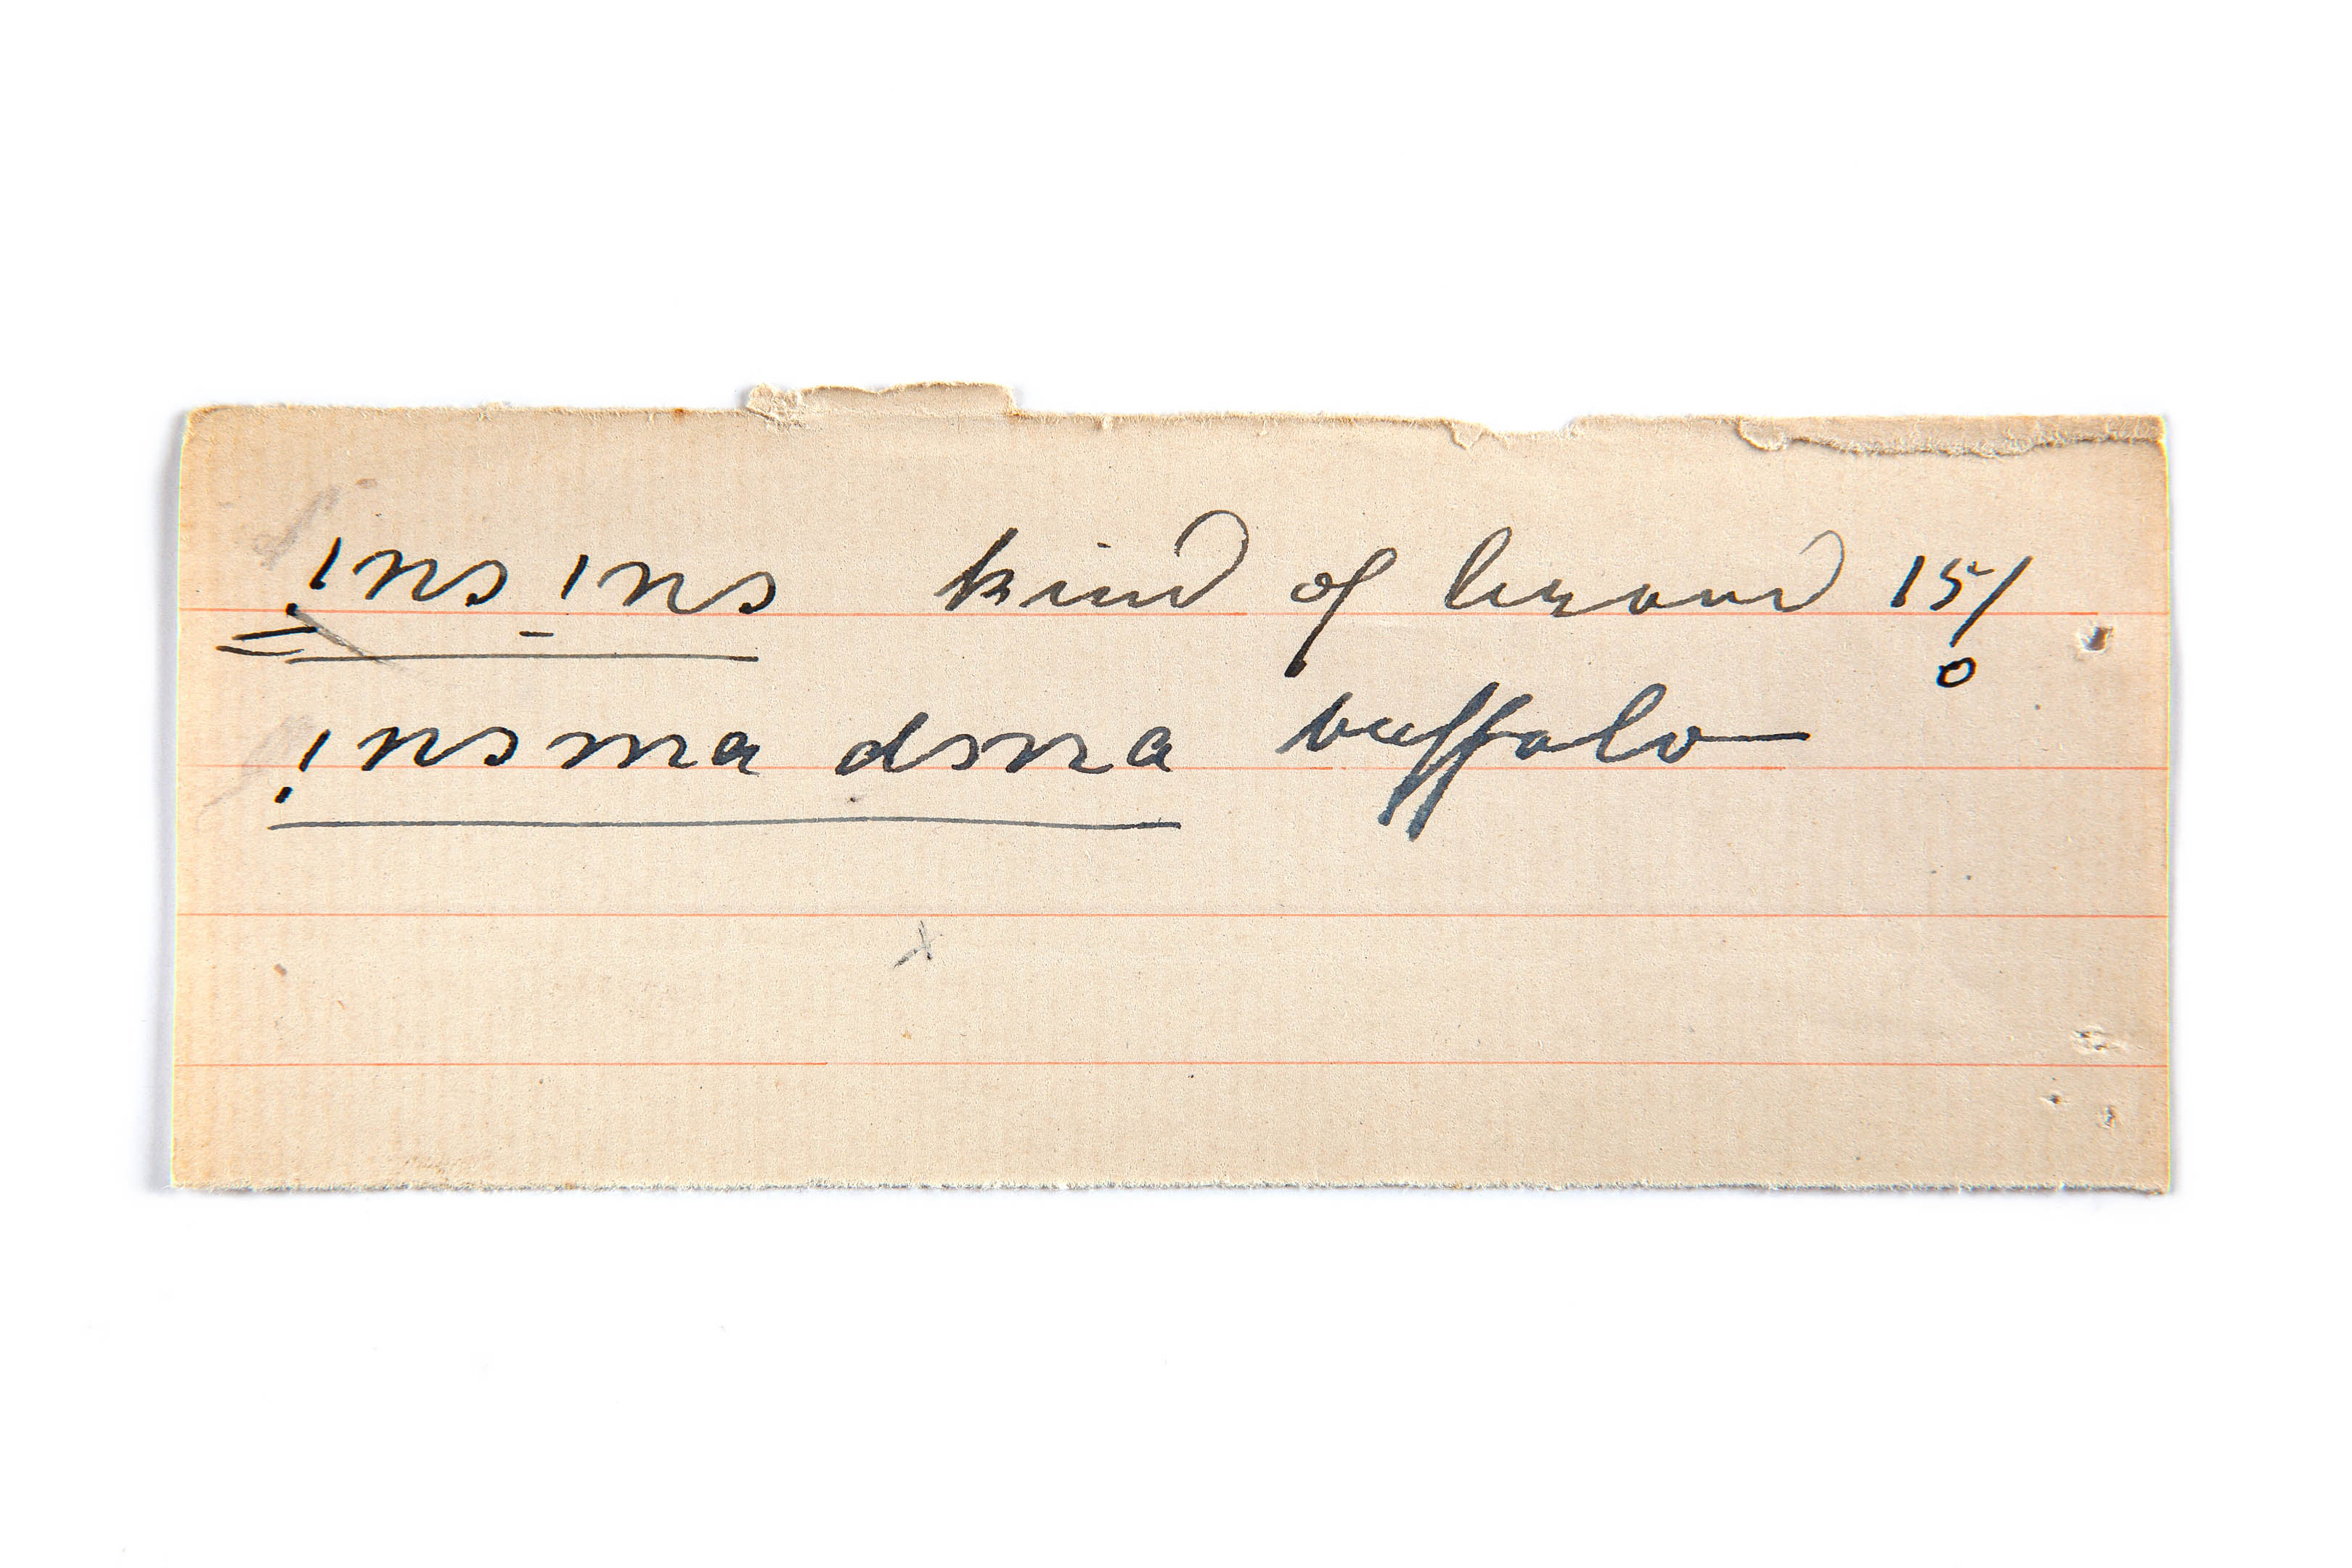 ınsıns kind of lizard 15/0
ınsma dsna buffalo